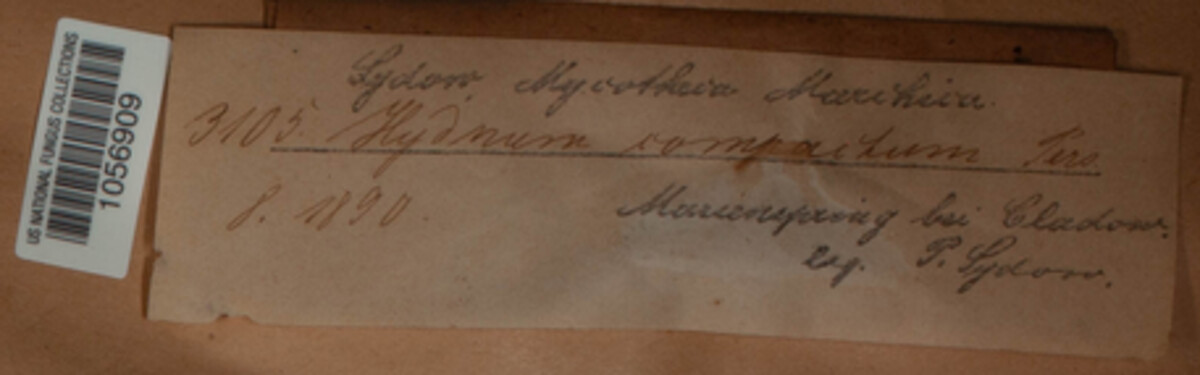 US NATIONAL FUNGUS COLLECTIONS
1056909
Sydow, Mycotheca Marchica.
3105. Hydnum compactum Pers.
8. 1890.
Marienspring bei Cladow.
leg. P. Sydow.